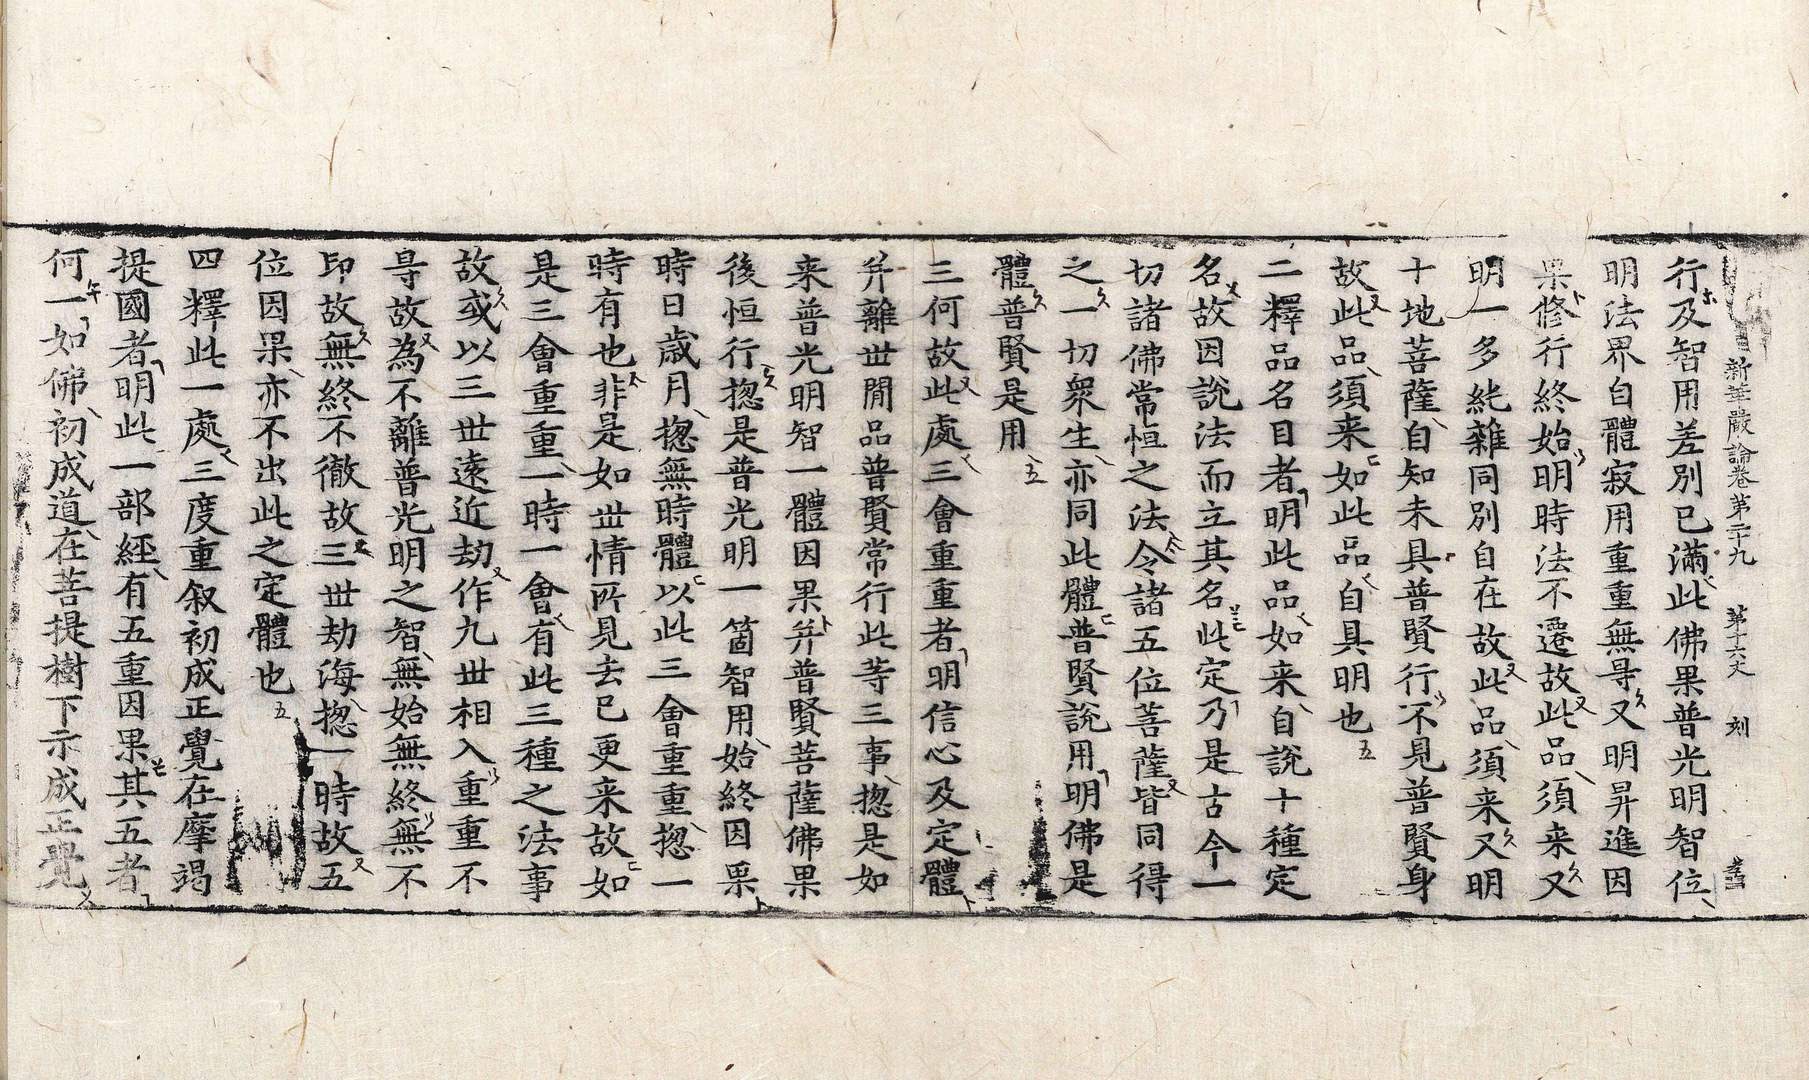 新華嚴論卷第二十九 第十六丈 刻
行及智用差別已滿此佛果普光明智位
明法界自體寂用重重無㝵又明昇進因
果修行終始明時法不遷故此品須来又
明一多純雜同別自在故此品須来又明
十地菩薩自知未具普賢行不見普賢身
故此品須来如此品自具明也
二釋品名目者明此品如来自說十種定
名故因說法而立其名此定乃是古今一
切諸佛常恒之法令諸五位菩薩皆同得
之一切衆生亦同此體普賢說用明佛是
體普賢是用
三何故此處三會重重者明信心及定體
并離世間品普賢常行此等三事揔是如
来普光明智一體因果并普賢菩薩佛果
後恒行揔是普光明一箇智用始終因果
時日歲月揔無時體以此三會重重揔一
時有也非是如世情所見去已更来故如
是三會重重一時一會有此三種之法事
故或以三世遠近劫作九世相入重重不
㝵故為不離普光明之智無始無終無不
印故無終不徹故三世劫海揔一時故五
位因果亦不出此之定體也
四釋此一處三度重叙初成正覺在摩竭
提國者明此一部經有五重因果其五者
何一如佛初成道在菩提樹下示成正覺